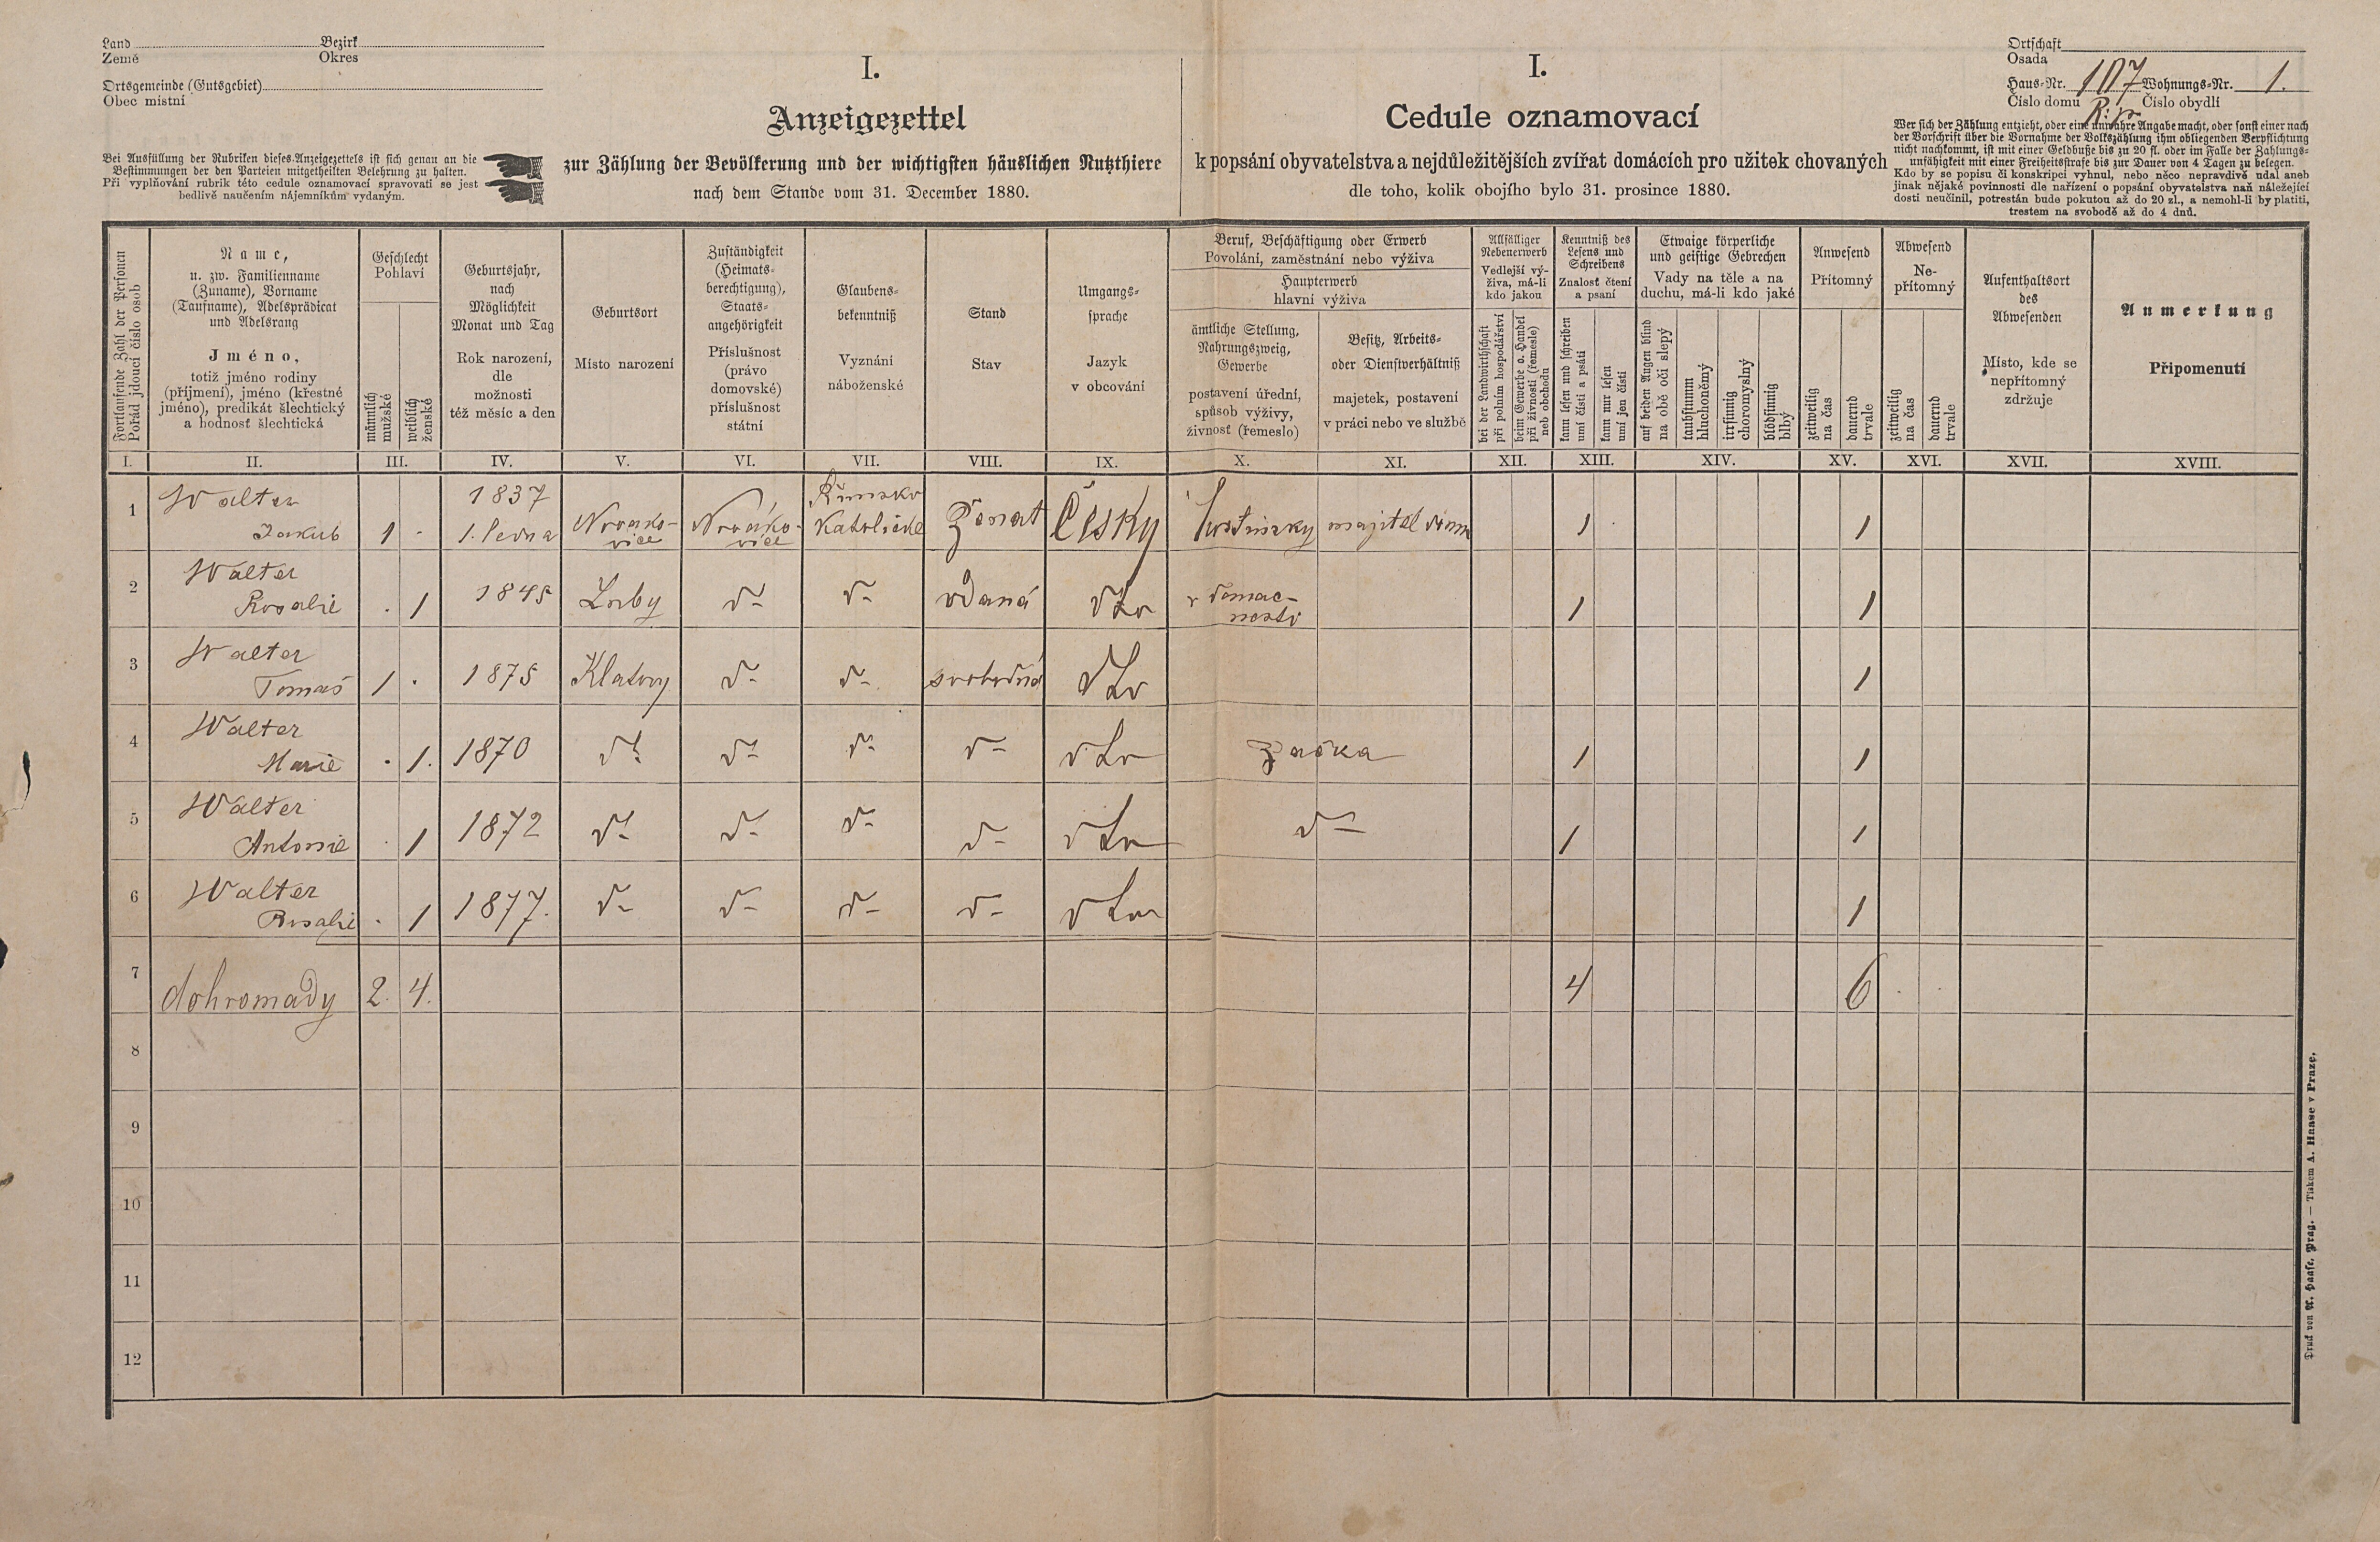 Land Bezirk
Země Okres
Ortsgemeinde (Gutsgebiet)
Obec místní
Bei Ausfüllung der Rubriken dieses Anzeigezettels ist sich genau an die
Bestimmungen der den Parteien mitgetheilten Belehrung zu halten.
Při vyplňování rubrik této cedule oznamovací spravovati se jest
bedlivě naučením nájemníkům vydaným.
I.
Anzeigezettel
zur Zählung der Bevölkerung und der wichtigsten häuslichen Nutzthiere
nach dem Stande vom 31. December 1880.
I.
Cedule oznamovací
k popsání obyvatelstva a nejdůležitějších zvířat domácích pro užitek chovaných
dle toho, kolik obojího bylo 31. prosince 1880.
Ortschaft
Osada
Haus-Nr. 107 Wohnungs-Nr. 1.
Číslo domu Číslo obydlí
Wer sich der Zählung entzieht, oder eine unwahre Angabe macht, oder sonst einer nach
der Vorschrift über die Vornahme der Volkszählung ihm obliegenden Verpflichtung
nicht nachkommt, ist mit einer Geldbuße bis zu 20 fl. oder im Falle der Zahlungs-
unfähigkeit mit einer Freiheitsstrafe bis zur Dauer von 4 Tagen zu belegen.
Kdo by se popisu či konskripci vyhnul, nebo něco nepravdivě udal aneb
jinak nějaké povinnosti dle nařízení o popsání obyvatelstva naň náležející
dosti neučinil, potrestán bude pokutou až do 20 zl., a nemohl-li by platiti,
trestem na svobodě až do 4 dnů.
Fortlaufende Zahl der Personen
Pořád jdoucí číslo osob
Name,
u. zw. Familienname
(Zuname), Vorname
(Taufname), Adelsprädicat
und Adelsrang
Jméno,
totiž jméno rodiny
(příjmení), jméno (křestné
jméno), predikát šlechtický
a hodnosť šlechtická
Geschlecht
Pohlaví
männlich
mužské
weiblich
ženské
Geburtsjahr,
nach
Möglichkeit
Monat und Tag
Rok narození,
dle
možnosti
též měsíc a den
Geburtsort
Místo narození
Zuständigkeit
(Heimats-
berechtigung),
Staats-
angehörigkeit
Příslušnost
(právo
domovské)
příslušnost
státní
Glaubens-
bekenntniß
Vyznání
náboženské
Stand
Stav
Umgangs-
sprache
Jazyk
v obcování
Beruf, Beschäftigung oder Erwerb
Povolání, zaměstnání nebo výživa
Haupterwerb
hlavní výživa
ämtliche Stellung,
Nahrungszweig,
Gewerbe
postavení úřední,
spůsob výživy,
živnosť (řemeslo)
Besitz, Arbeits-
oder Dienstverhältniß
majetek, postavení
v práci nebo ve službě
Allfälliger
Nebenerwerb
Vedlejší vý-
živa, má-li
kdo jakou
bei der Landwirthschaft
při polním hospodářství
beim Gewerbe o. Handel
při živnosti (řemesle)
neb obchodu
Kenntniß des
Lesens und
Schreibens
Znalosť čtení
a psaní
kann lesen und schreiben
umí čísti a psáti
kann nur lesen
umí jen čísti
Etwaige körperliche
und geistige Gebrechen
Vady na těle a na
duchu, má-li kdo jaké
auf beiden Augen blind
na obě oči slepý
taubstumm
hluchoněmý
irrsinnig
choromyslný
blödsinnig
blbý
Anwesend
Přítomný
zeitweilig
na čas
dauernd
trvale
Abwesend
Ne-
přítomný
zeitweilig
na čas
dauernd
trvale
Aufenthaltsort
des
Abwesenden
Místo, kde se
nepřítomný
zdržuje
Anmerkung
Připomenutí
I. II. III. IV. V. VI. VII. VIII. IX. X. XI. XII. XIII. XIV. XV. XVI. XVII. XVIII.
1 Walter 1837 Římsko
Jakub 1 - 1. ledna katolické Ženat Česky hostinsky majitel domu 1 1
2 Walter
Rosalie . 1 1845 Luby d- d- vdaná dto v domac-
nosti 1 1
3 Walter
Tomaš 1 . 1875 Klatovy d- d- svobodná dto 1
4 Walter
Marie . 1. 1870 d- d- d- d- dto žačka 1 1
5 Walter
Antonie . 1 1872 d- d- d- d- dto d- 1 1
6 Walter
Rosalie . 1 1877. d- d- d- d- dto 1
7 dohromady 2. 4. 4 6
8
9
10
11
12
Druck von A. Haase, Prag. — Tiskem A. Haase v Praze.